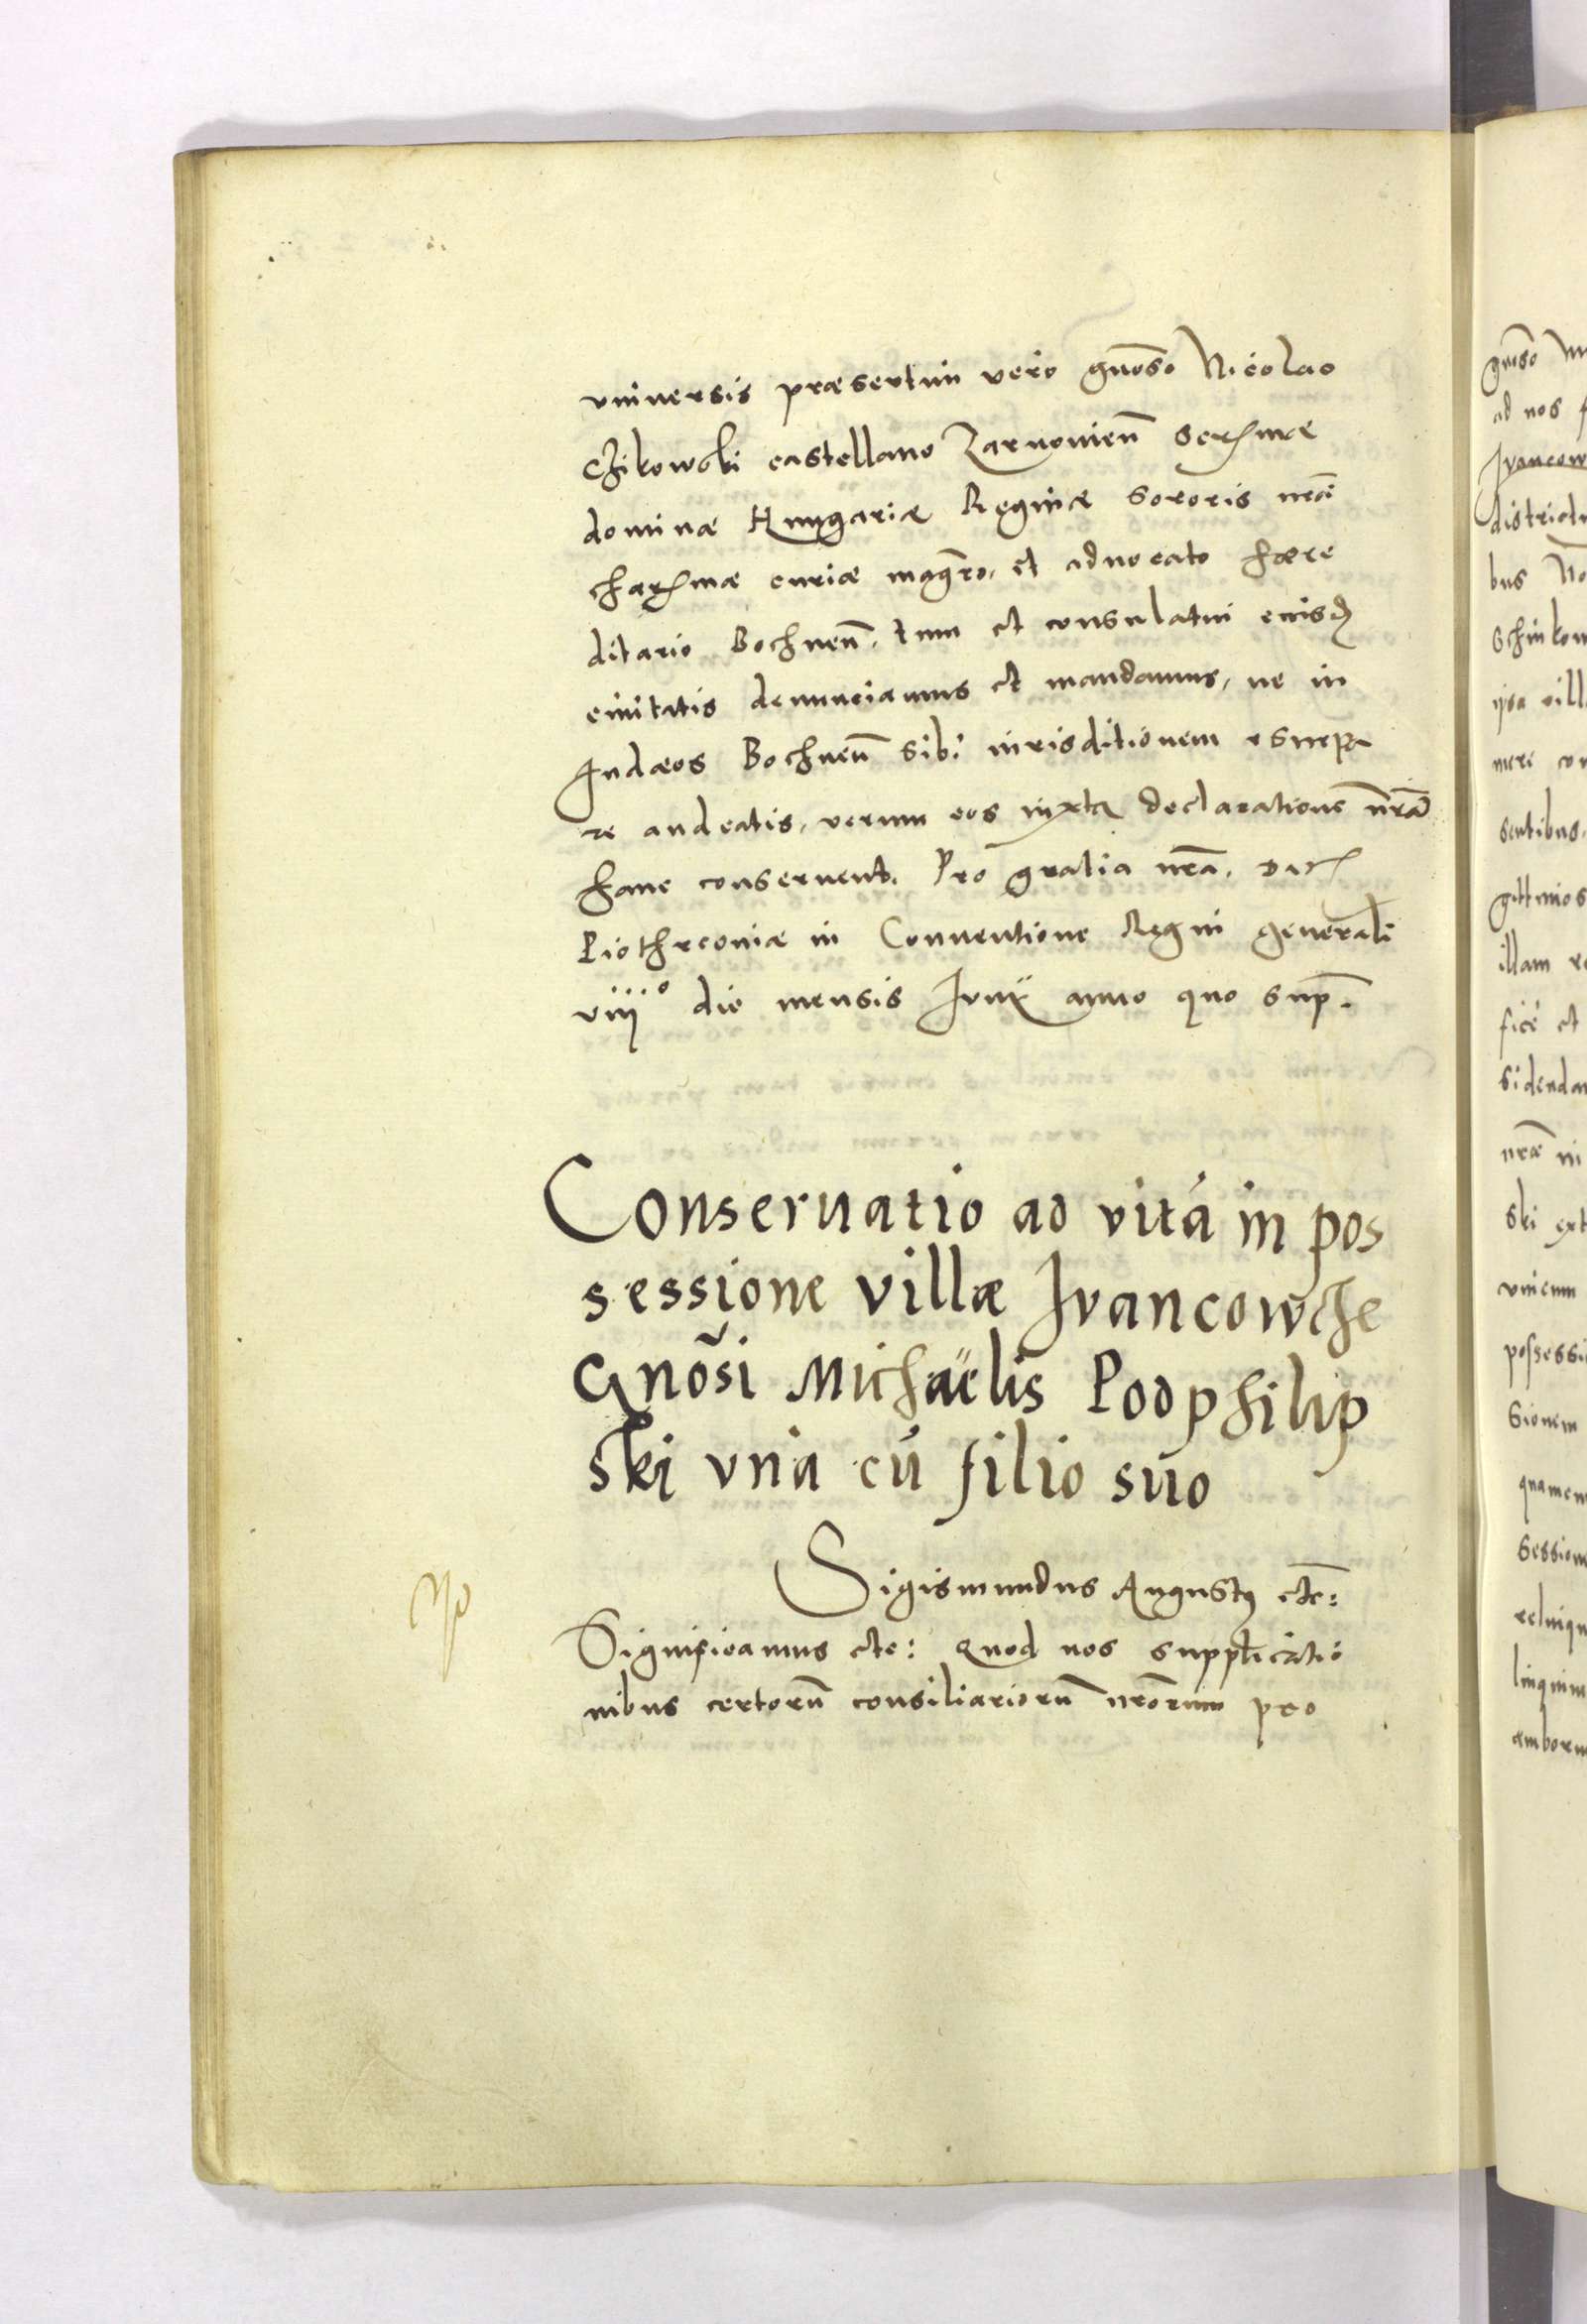 vniuersis præsertim vero gnoso Nicolao
Czikowski castellano Zarnouien̄ Sermæ
dominæ Hungariæ Reginæ sororis nrāe
charmæ curiæ magrō, et aduocato hære
ditario Bochnen̄. tum et consulatui eiusd
ciuitatis denunciamus et mandamus, ne in
Iudæos Bochnen̄ sibi iurisditionem vsurpa
re audeatis, verum eos iuxta declarationē nrām
hanc conseruent. Pro gratia nrā. Dat
Piothrcouiæ in Conuentione Regni generali
viiij° die mensis Iunij anno quo sup.
Conseruatio ad vitā in pos
sessione villæ Ivancowcze
Gnōsi Michaëlis Podphilip
ski vnà cū filio suo
Sigismundus Augustus etc:
Significamus etc: Quod nos supplicatio
nibus certorū consiliariorū nrōrum pro
gnoso
ad nos
Ivancow
district
bus
Schinkow
ipsa vill
mere con
sentibus,
gittimos
illam re
ficē et
sidendam
nrāe in
ski ext
vnicum
possessi
sionem
quamcun
session
relinqu
linquim
amborum